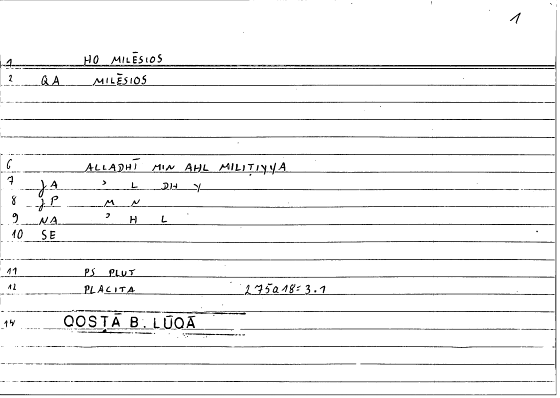 1
1 HO MILĒSIOS
2 QA MILĒSIOS
6 ALLADHĪ MIN AHL MILIṬIYYA
7 JA ʾ L DH Y
8 JP M N
9 NA ʾ H L
10 SE
11 PS PLUT
12 PLACITA 275a18=3.1
14 QOSṬĀ B. LŪQĀ